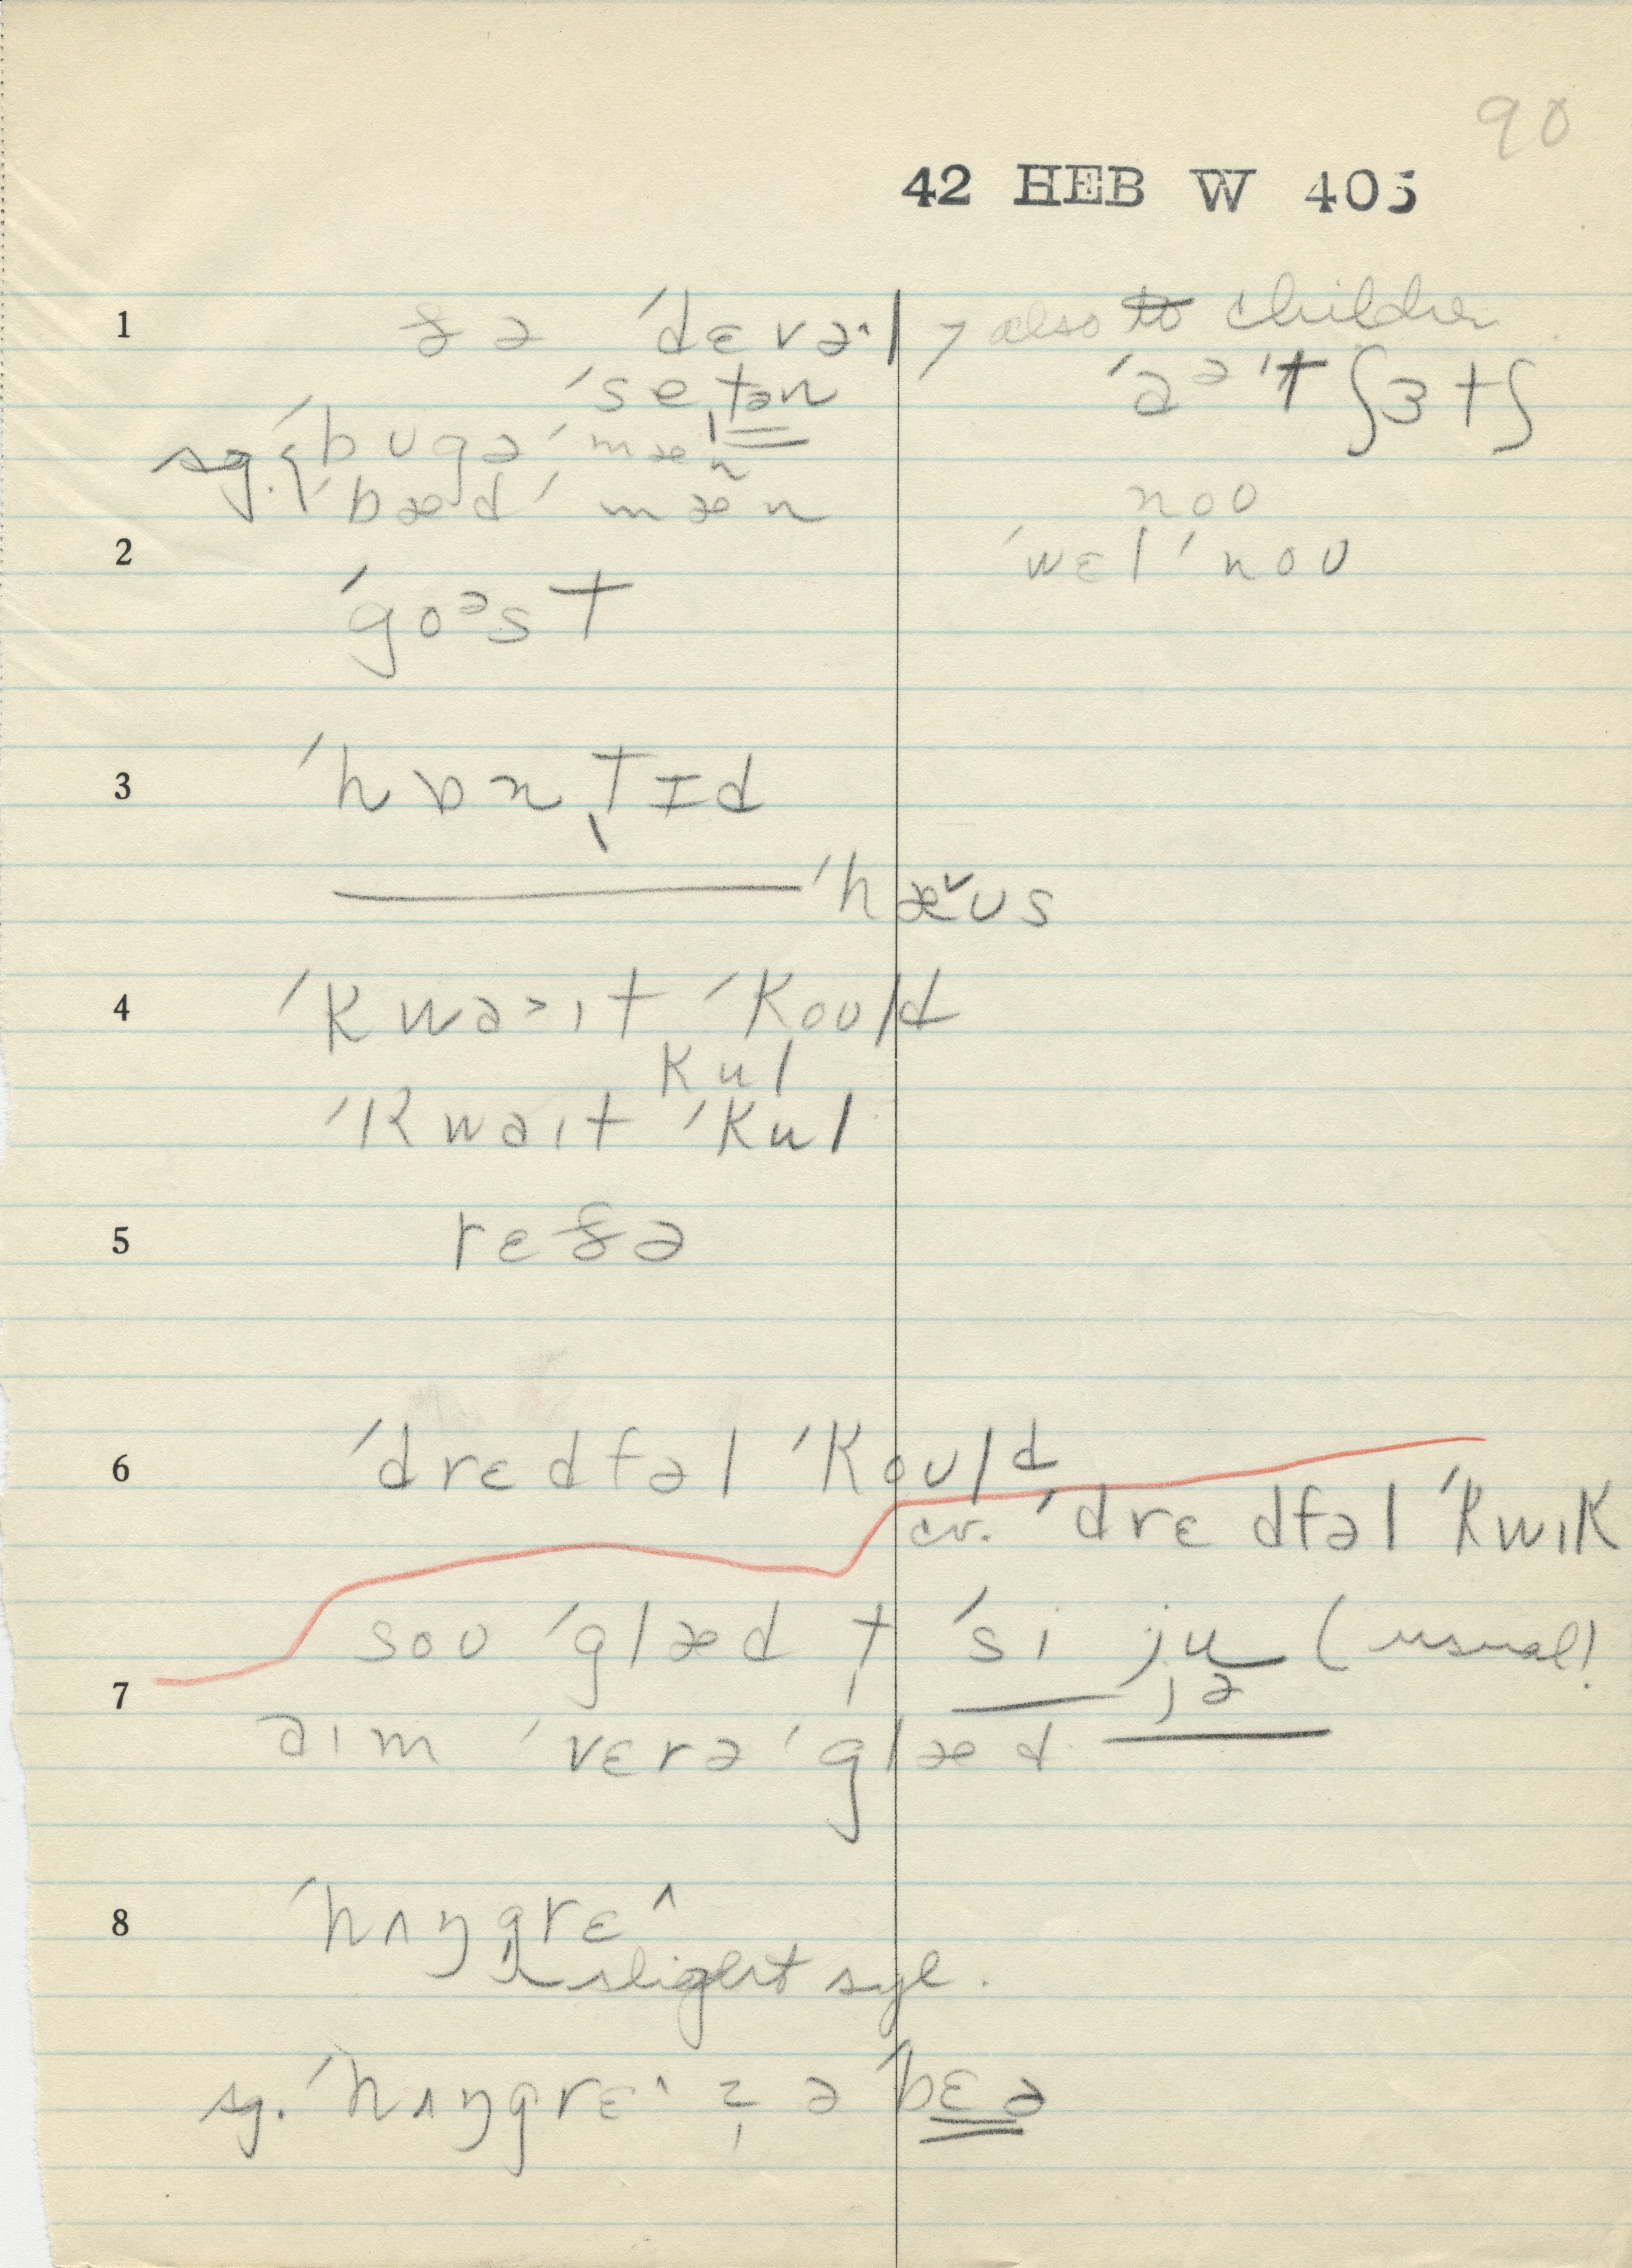 90
42 HEB W 405
1 ðə ˈdɛvəˆl > also to children
ˈsetən ˈaᵊˈt ʃɜtʃ
sg. { ˈbugəˈmæn
ˈbædˈmæn noo
2 ˈwɛlˈnoʊ
ˈgoᵊst
3 ˈhɒntɪd
ˈhæˇʊs
4 ˈkwa˃ıt ˈkoʊld
kul
ˈkwaıt ˈkul
5 rɛðə
6 ˈdrɛdfəl ˈkoʊld
cv. ˈdrɛdfəl ˈkwık
soʊ ˈglæd t ˈsi ju (usual!
7 jə
aım ˈvɛrəˈglæd
8 ˈhʌŋgrɛˆ
slight syl.
sg. ˈhʌŋgrɛˆ z ə ˈbɛə